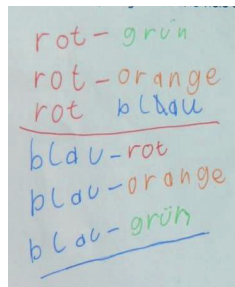 rot-grün
rot-orange
rot blau
blau-rot
blau-orange
blau-grün